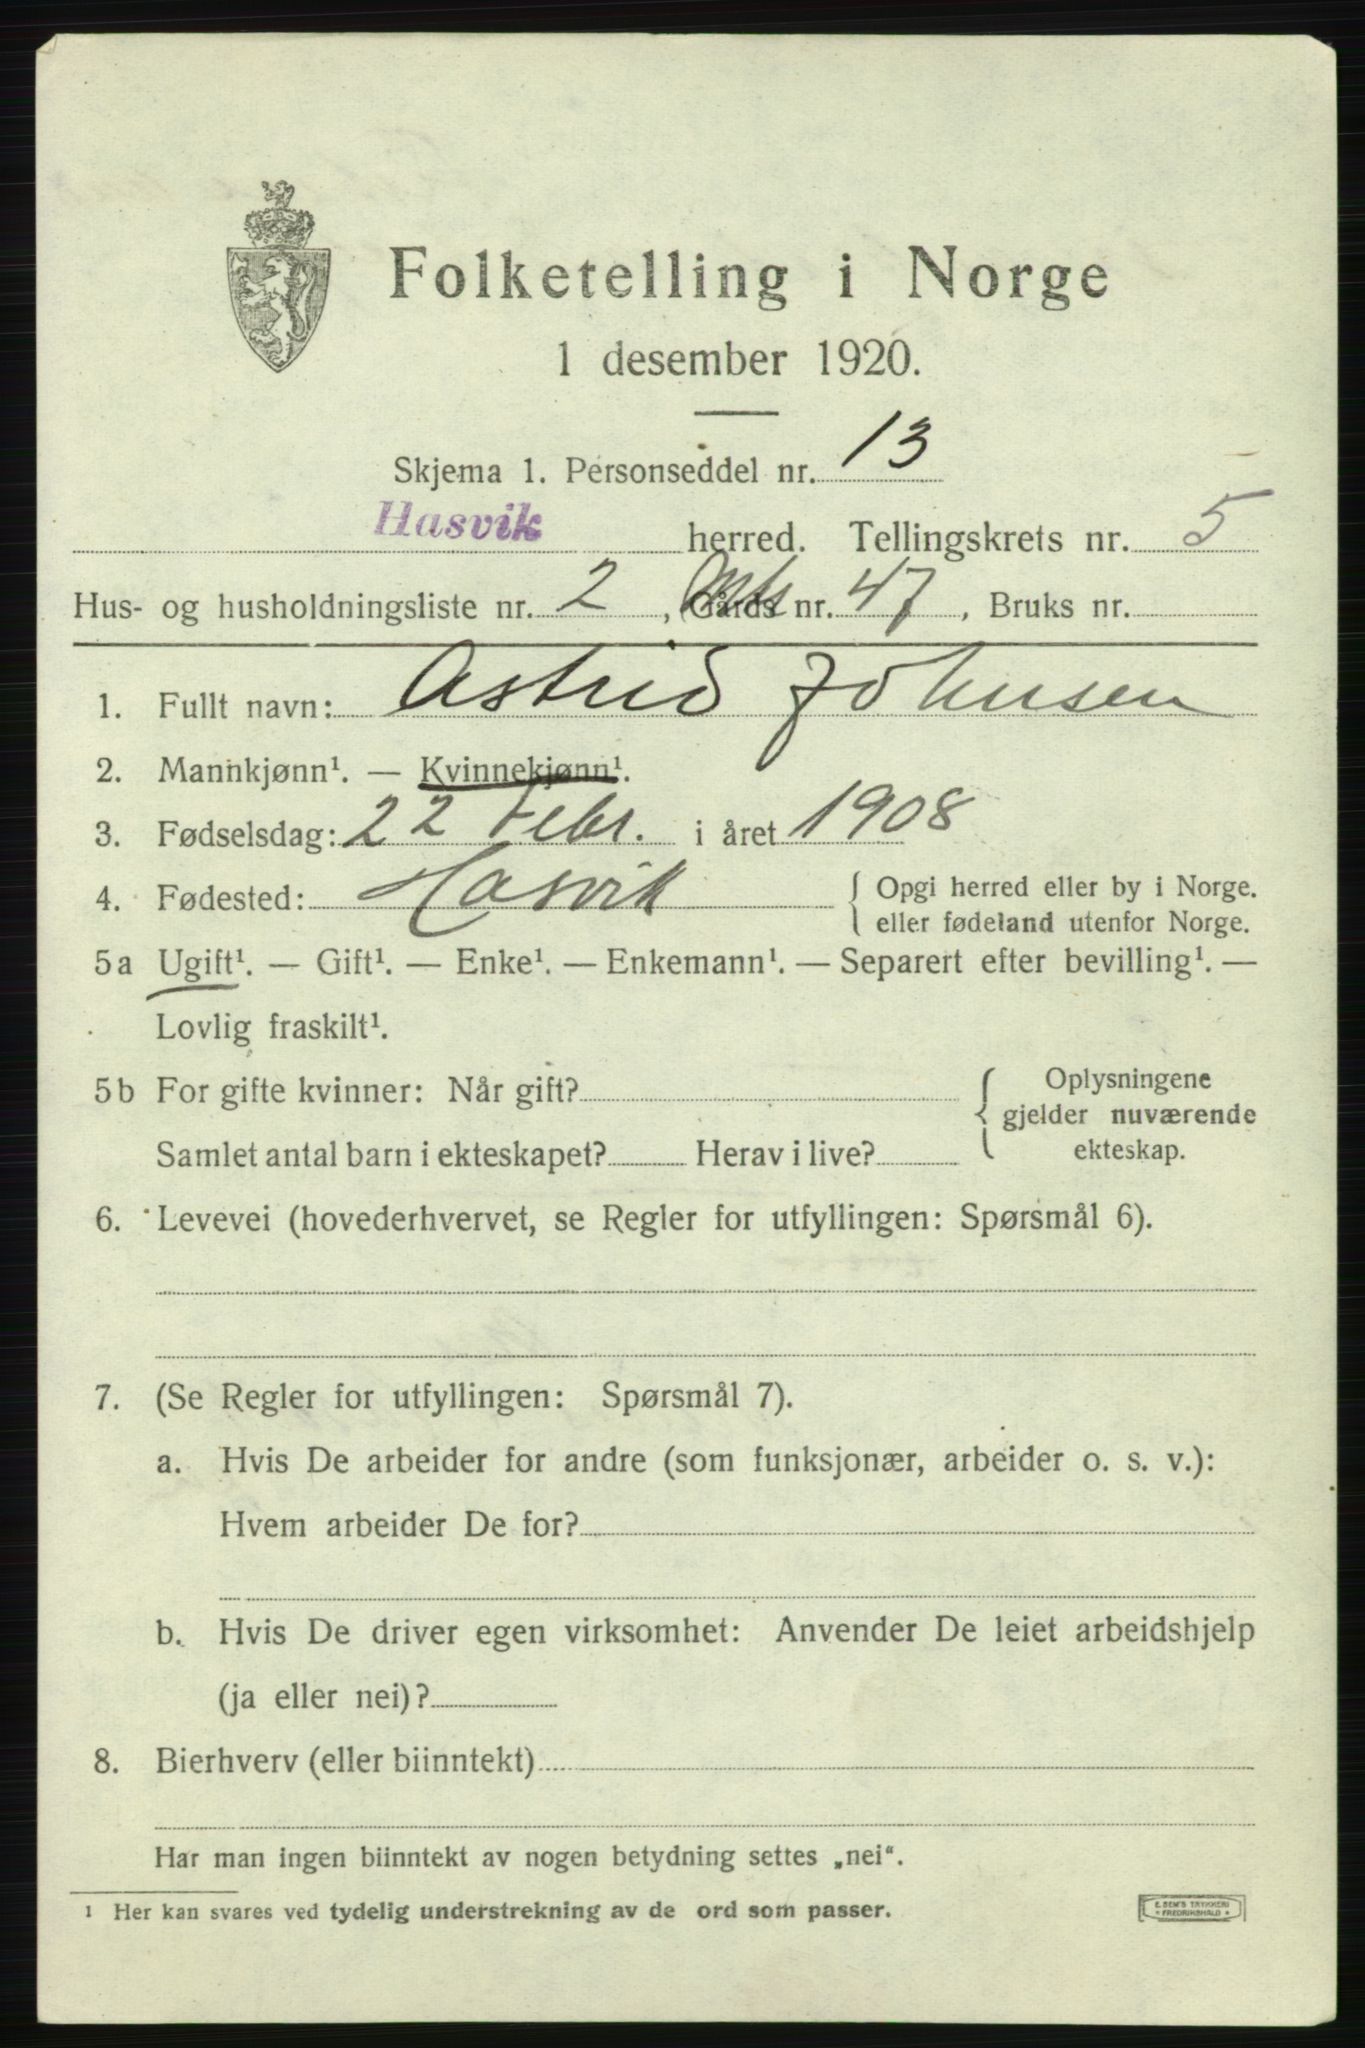 Folketelling i Norge
1 desember 1920.
Skjema 1. Personseddel nr. 13
Hasvik herred. Tellingskrets nr. 5
Hus- og husholdningsliste nr. 2, Gårds nr. 47, Bruks nr.
1. Fullt navn: Astrid Johnsen
2. Mannkjønn¹. — Kvinnekjønn¹.
3. Fødselsdag: 22 Febr. i året 1908
4. Fødested: Hasvik { Opgi herred eller by i Norge.
eller fødeland utenfor Norge.
5a Ugift¹. — Gift¹. — Enke¹. — Enkemann¹. — Separert efter bevilling¹. —
Lovlig fraskilt¹.
5b For gifte kvinner: Når gift? { Oplysningene
gjelder nuværende
Samlet antal barn i ekteskapet? Herav i live? ekteskap.
6. Levevei (hovederhvervet, se Regler for utfyllingen: Spørsmål 6).
7. (Se Regler for utfyllingen: Spørsmål 7).
a. Hvis De arbeider for andre (som funksjonær, arbeider o. s. v.):
Hvem arbeider De for?
b. Hvis De driver egen virksomhet: Anvender De leiet arbeidshjelp
(ja eller nei)?
8. Bierhverv (eller biinntekt)
Har man ingen biinntekt av nogen betydning settes „nei“.
1 Her kan svares ved tydelig understrekning av de ord som passer.
E. SEM'S TRYKKERI
FREDRIKSHALD